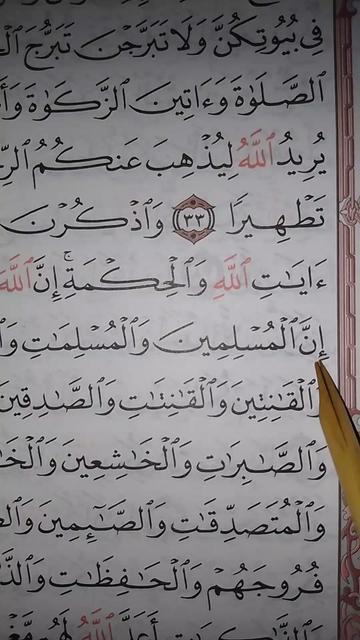 فِى بُيُوتِكُنَّ وَلَا تَبَرَّجْنَ تَبَرُّجَ
ٱلصَّلَوٰةَ وَءَاتِينَ ٱلزَّكَوٰةَ
يُرِيدُ ٱللَّهُ لِيُذْهِبَ عَنكُمُ
تَطْهِيرًا ٣٣ وَٱذْكُرْنَ
ءَايَٰتِ ٱللَّهِ وَٱلْحِكْمَةِ ۚ إِنَّ ٱللَّهَ
إِنَّ ٱلْمُسْلِمِينَ وَٱلْمُسْلِمَٰتِ
وَٱلْقَٰنِتِينَ وَٱلْقَٰنِتَٰتِ وَٱلصَّٰدِقِينَ
وَٱلصَّٰبِرَٰتِ وَٱلْخَٰشِعِينَ
وَٱلْمُتَصَدِّقَٰتِ وَٱلصَّٰٓئِمِينَ
فُرُوجَهُمْ وَٱلْحَٰفِظَٰتِ
أَعَدَّ ٱللَّهُ لَهُم